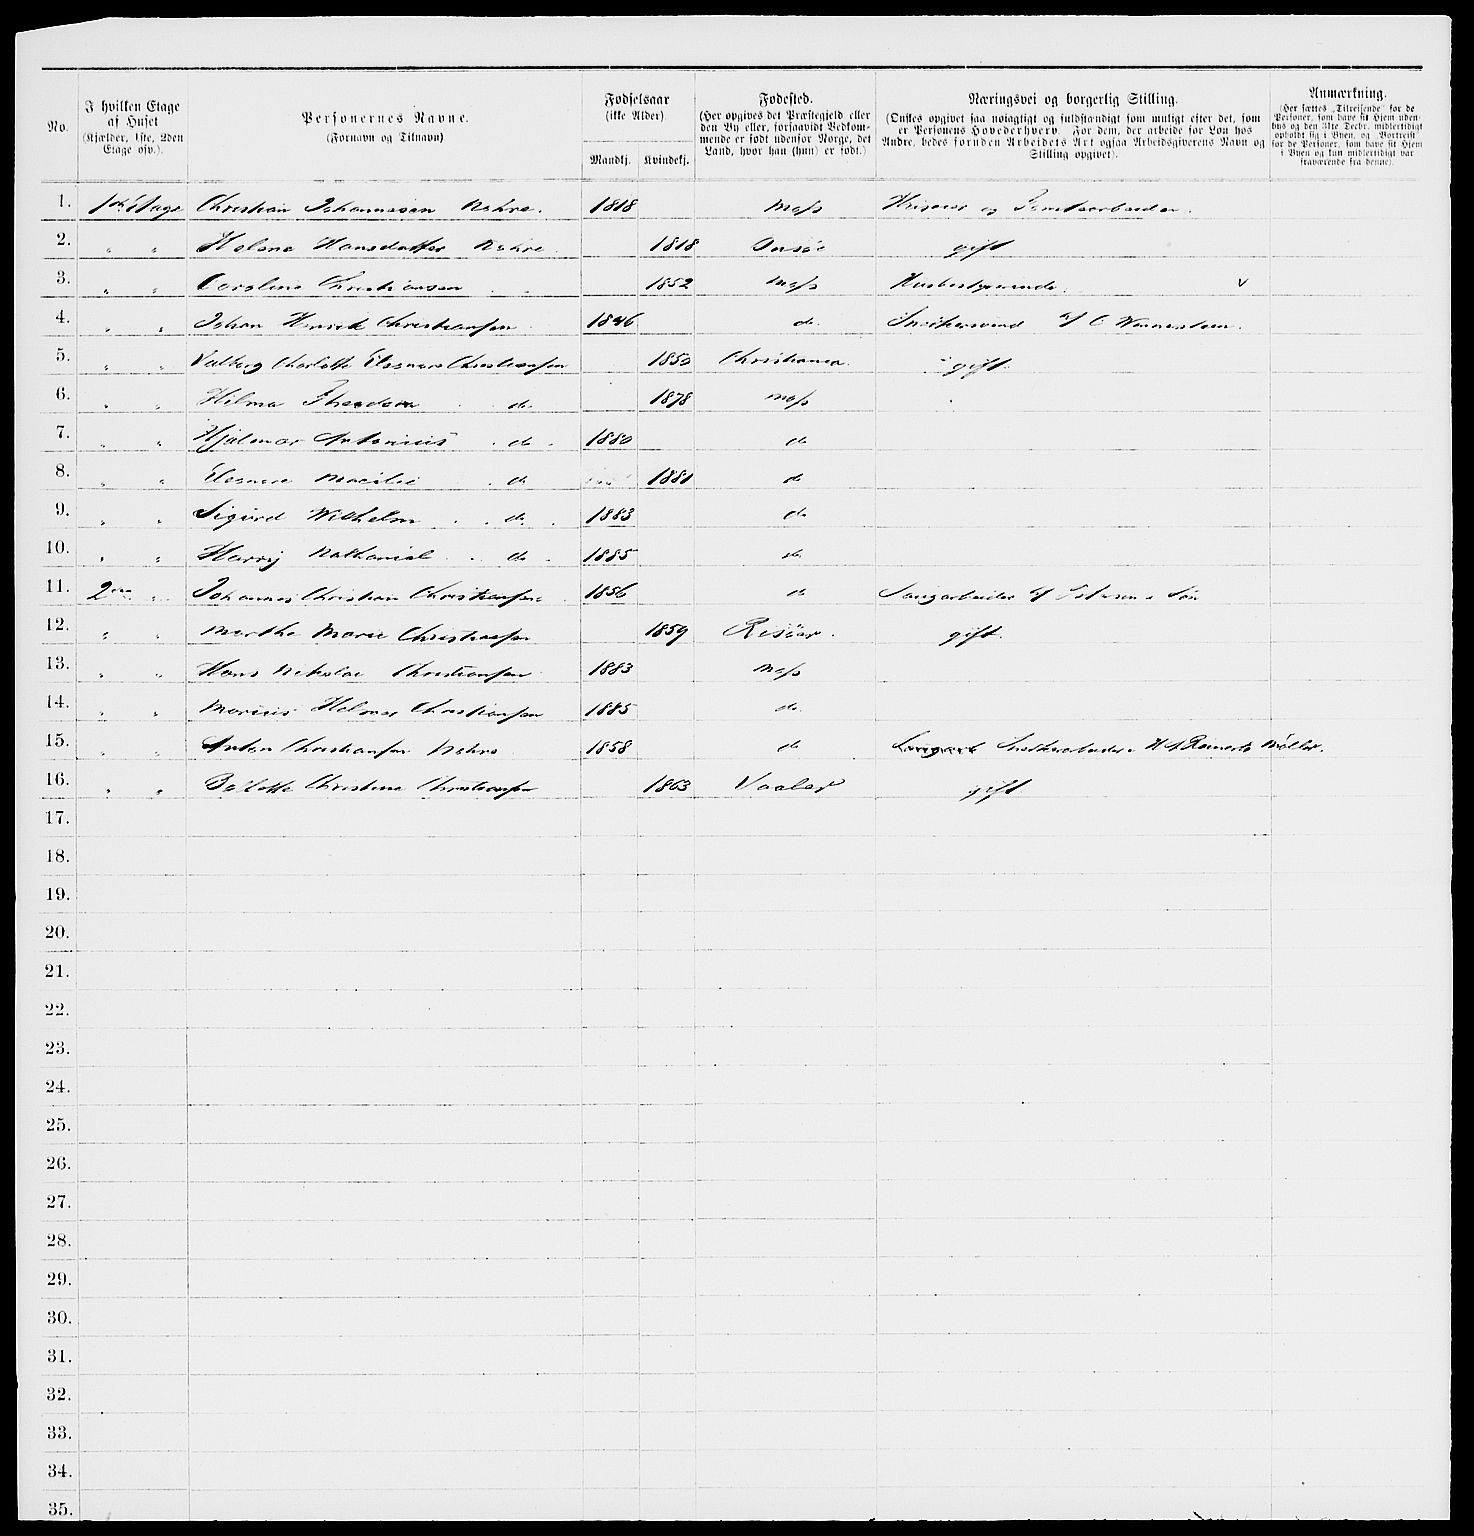 No.
I hvilken Etage
af Huset
(Kjælder, 1ste, 2den
Etage osv.).
Personernes Navne.
(Fornavn og Tilnavn)
Fødselsaar
(ikke Alder).
Mandkj. Kvindekj.
Fødested.
(Her opgives det Præstegjeld eller
den By eller, forsaavidt Vedkom-
mende er født udenfor Norge, det
Land, hvor han (hun) er født.)
Næringsvei og borgerlig Stilling.
(Ønskes opgivet saa nøiagtigt og fuldstændigt som muligt efter det, som
er Personens Hovederhverv. For dem, der arbeide for Løn hos
Andre, bedes foruden Arbeidets Art ogsaa Arbeidsgiverens Navn og
Stilling opgivet).
Anmærkning.
(Her sættes "Tilreisende" for de
Personer, som have sit Hjem uden-
bys og den 31te Decbr. midlertidigt
opholdt sig i Byen, og "Bortreist"
for de Personer, som have sit Hjem
i Byen og kun midlertidigt var
fraværende fra denne).
1. 1ste Etage Christian Johannesen 1818 Moss Huseier og
2. " " Helene Hansdatter 1818 Onsøe gift
3. " " Christiansen 1852 Moss Husbestyrerinde v
4. " " Johan Henrik Christiansen 1846 do. Snedkersvend
5. " " Valborg Charlotte Eleonora Christiansen 1850 Christiania. gift.
6. " " Hilma Theodora do. 1878 Moss
7. " " Hjalmar Antonius do. 1880 do
8. " " Eleonora do 1881 do
9. " " Sigurd Wilhelm do. 1883 do
10. " " Harry Nathaniel do. 1885 do.
11. 2den " Johannes Christian Christiansen 1856 do Sangarbeider Søn
12. " " Marthe Marie Christiansen 1859 Risöer. gift.
13. " " Hans Nikolai Christiansen 1883 Moss
14. " " Marius Helmer Christiansen 1885 do.
15. " " Anton Christiansen 1858 do Snedkerarbeider Møller.
16. " " Christine Christiansen 1863 Vaaler gift
17.
18.
19.
20.
21.
22.
23.
24.
25.
26.
27.
28.
29.
30.
31.
32.
33.
34.
35.